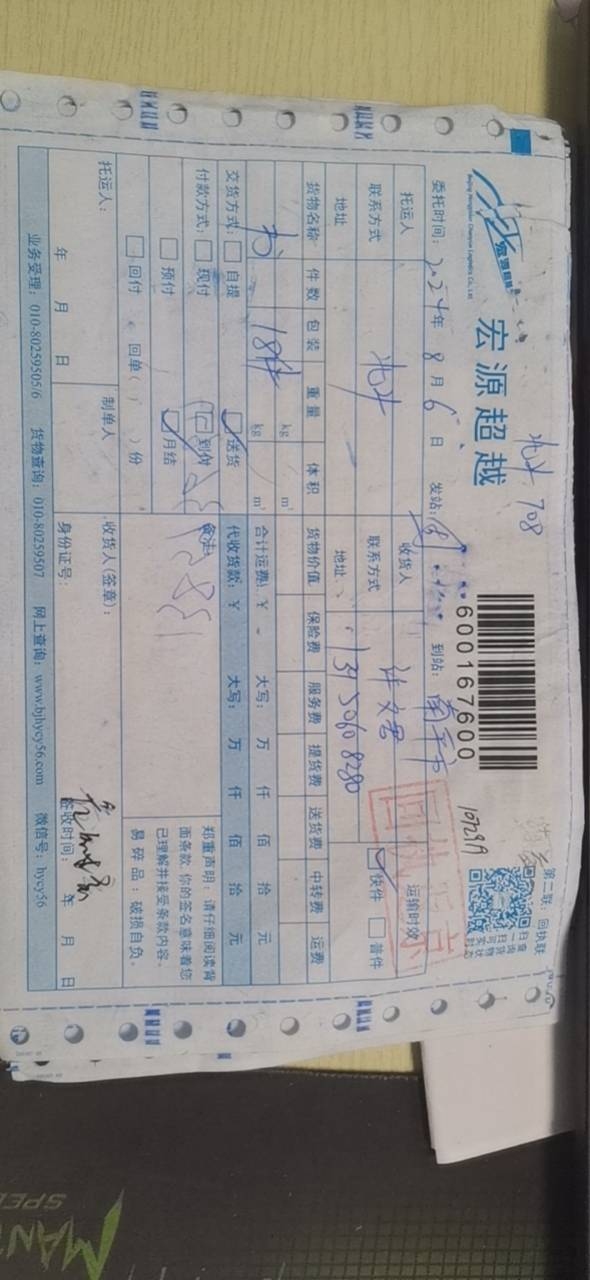 第二联：回执联
宏源超越
Beijing Hongyuan Chaoyue Logistics Co., Ltd
708
600167600
107297
扫一扫
委托时间：2024年8月6日 发站： 到站：南平市
托运人 收货人 许文君 运输时效
联系方式 联系方式 ☑快件 □普件
地址 地址 13950608280
货物名称 件数 包装 重量 体积 货物价值 保险费 服务费 提货费 送货费 中转费 运费
18件 kg m³
kg m³ 合计运费：￥ 大写： 万 仟 佰 拾 元
交货方式：□自提 ☑送货 代收货款：￥ 大写： 万 仟 佰 拾 元
付款方式：□现付 □到付 备注：
□预付 ☑月结
□回付 回单（ ）份
郑重声明：请仔细阅读背
面条款，你的签名意味着您
已理解并接受条款内容。
易碎品：破损自负。
托运人： 制单人 收货人(签章)：
年 月 日 身份证号： 签收时间： 年 月 日
业务受理：010-80259505/6 货物查询：010-80259507 网上查询：www.bjhycy56.com 微信号：hycy56